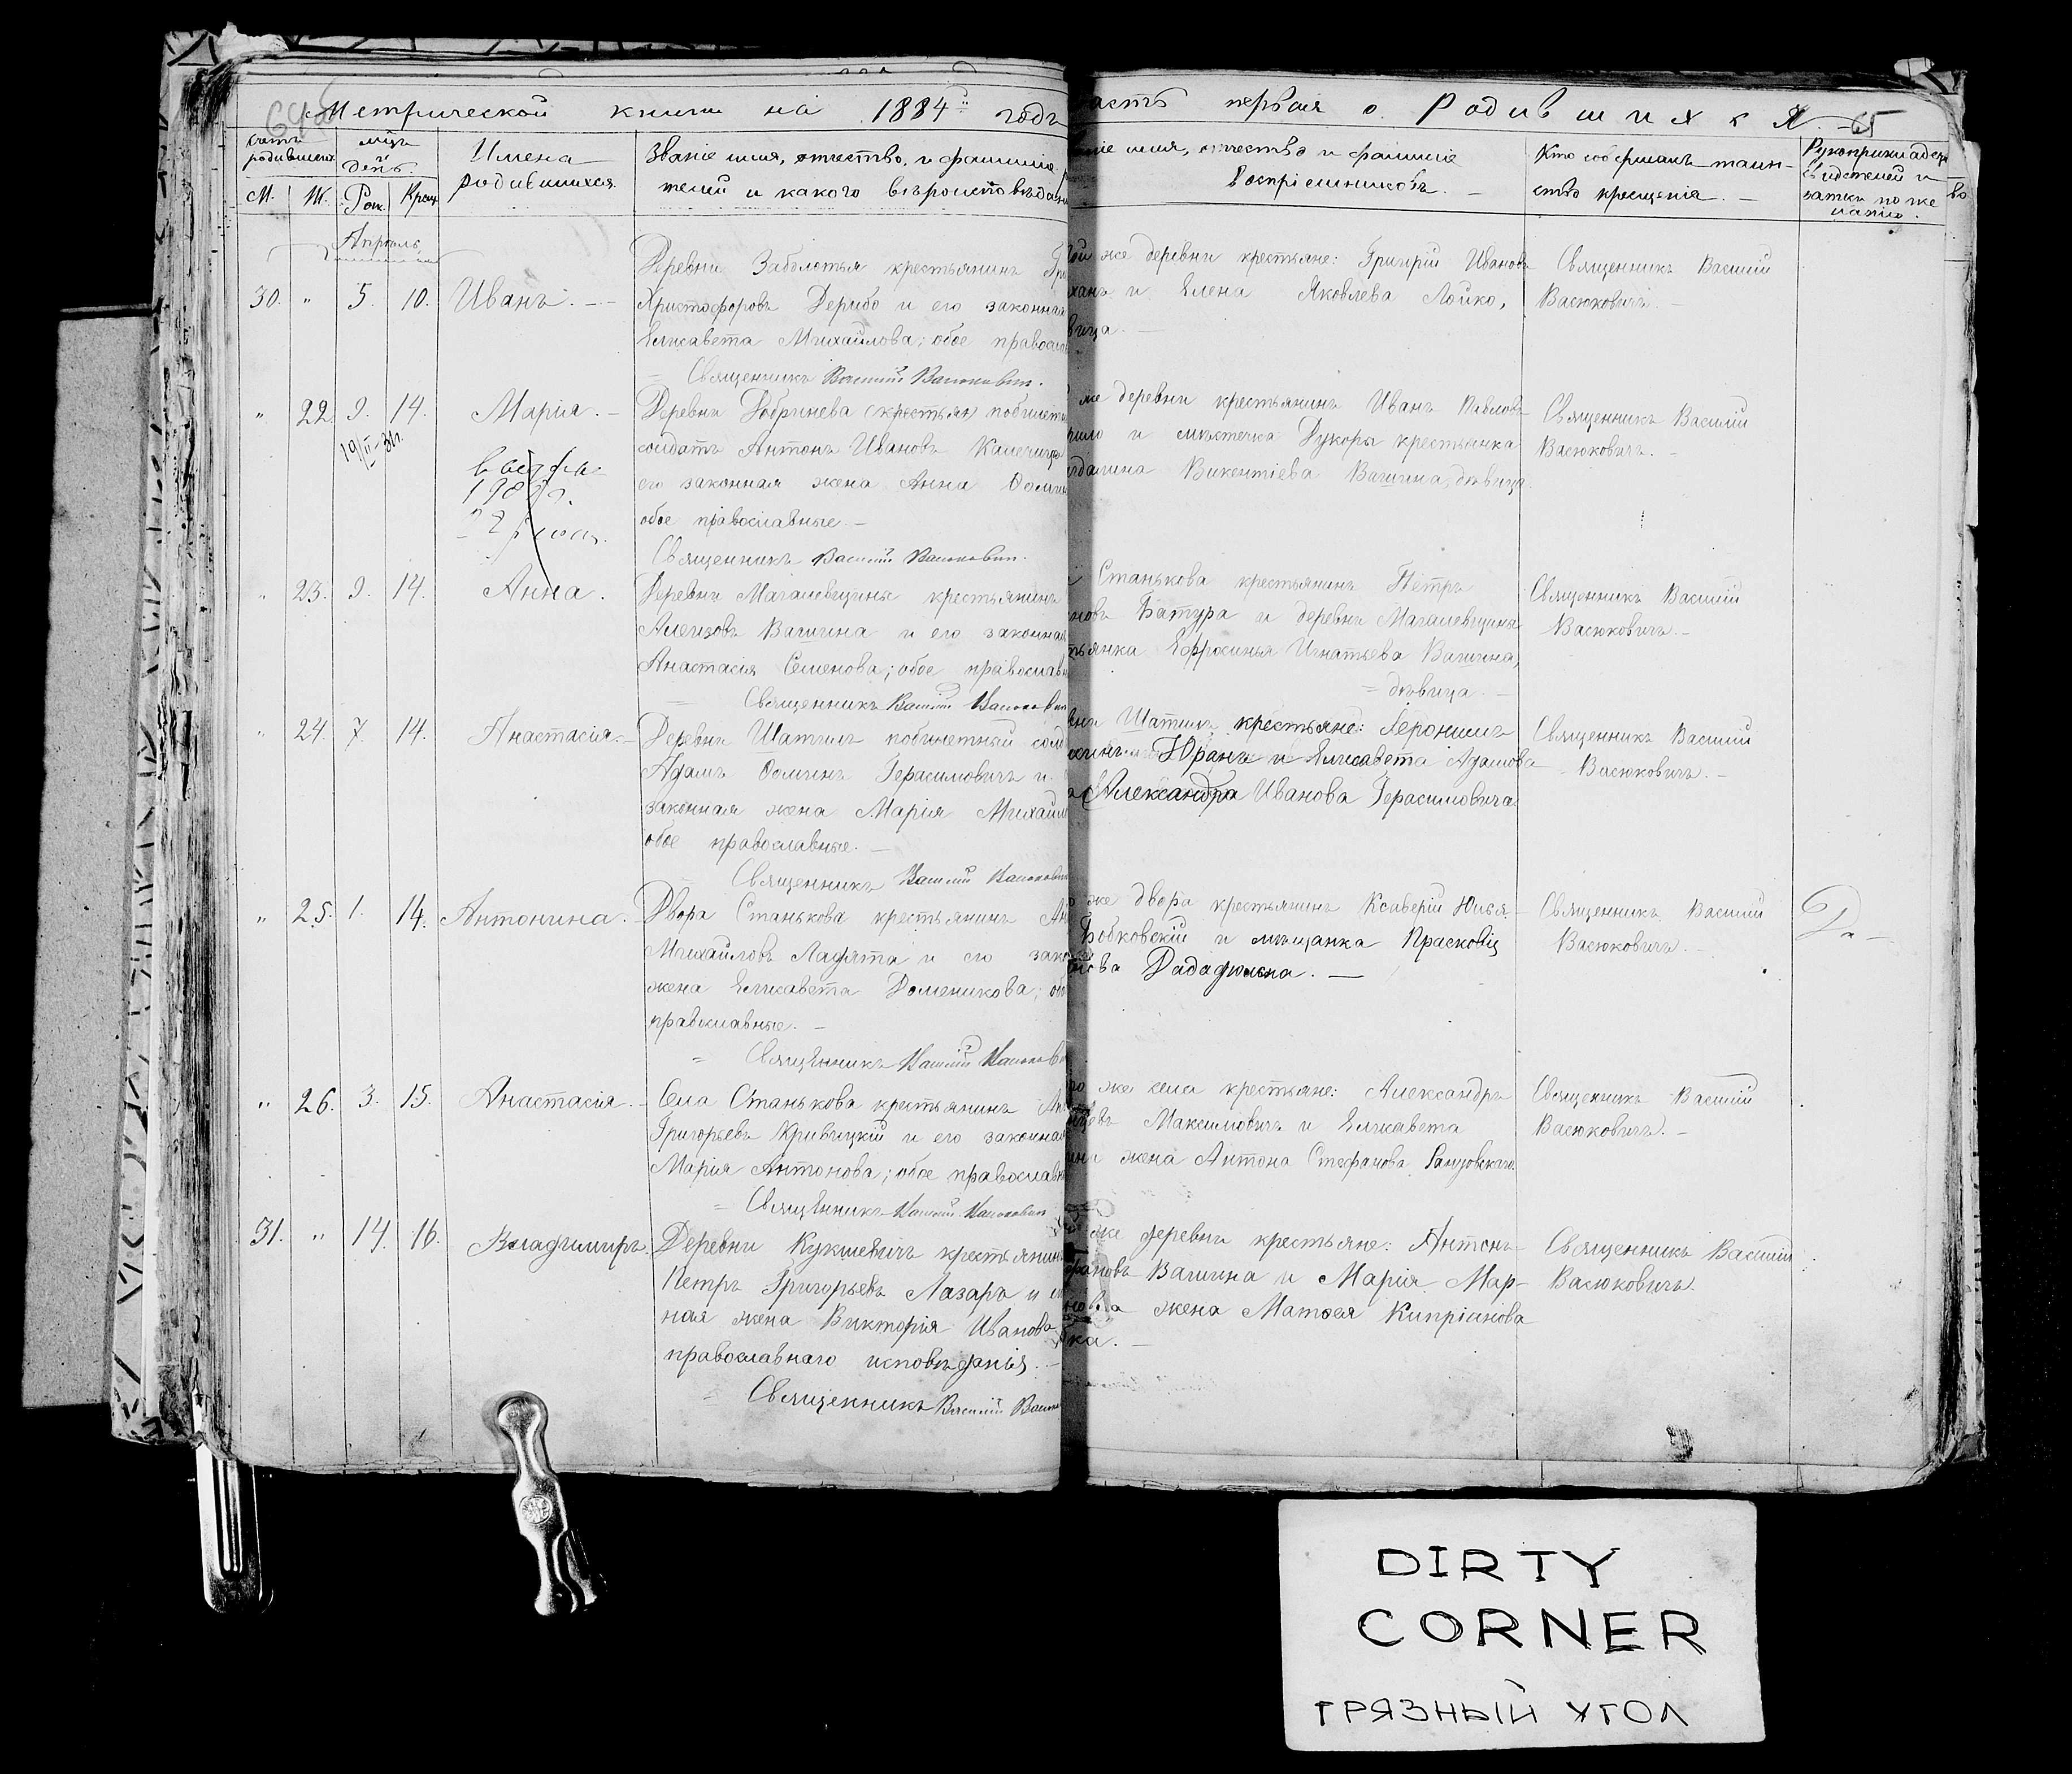 Метрической книги на 1884й годъ
часть первая о Родившихся
65
счетъ родившихся
мцъ и день
Имена родившихся
Званіе имя, отчество, и фамилія
телей и какого вѣроисповѣдан
М. Ж. Рож. Крещ.
ніе имя, отчество и фамиліе
воспріемниковъ.
Кто совершалъ таин-
ство крещенія.
Рукоприкладство
свидетелей и
записи по же
ланію.
Апрель
30. " 5. 10. Иванъ.
Деревни Заболотья крестьянинъ Гри
Христофоровъ Дерибо и его законная
Елисавета Михайлова; обое православ
Священникъ Василій Васюковичъ.
той же деревни крестьяне: Григорій Ивановъ
ханъ и Елена Яковлева Лойко,
вица.
Священникъ Василій
Васюковичъ.
" 22. 9. 14. Марія.
19/II-31г.
Деревни Добринева (крестьян) побилетн
солдатъ Антонъ Ивановъ
его законная жена Анна Фомин
обое православные.
Священникъ Василій Васюковичъ.
же деревни крестьянинъ Иванъ Павловъ
рило и мѣстечка Дукоры крестьянка
гдалина Викентіева Вашина, дѣвица.
Священникъ Василій
Васюковичъ.
" 23. 9. 14. Анна.
Деревни Магалевщины крестьянинъ
Алеизовъ Вашина и его законная
Анастасія Семенова; обое православн
Священникъ Василій Васюкович
Станькова крестьянинъ Петръ
новъ Батура и деревни Магалевщины
тьянка Ефросинья Игнатьева Вашина,
дѣвица.
Священникъ Василій
Васюковичъ.
" 24. 7. 14. Анастасія.
Деревни Шатилъ побилетный солд
Адамъ Фоминъ Герасимовичъ и
законная жена Марія Михайл
обое православные.
Священникъ Василій Васюкович
вни Шатилъ крестьяне: Геронимъ
Юранъ и Елисавета Адамова
Александра Иванова Герасимовича
Священникъ Василій
Васюковичъ.
" 25. 1. 14. Антонина.
Двора Станькова крестьянинъ Ан
Михайловъ Лафята и его зако
жена Елисавета Доменикова; об
православные.
Священникъ Василій Васюков
же двора крестьянинъ Ксаверій Юлья-
Бобковскій и мѣщанка Прасковія
Священникъ Василій
Васюковичъ.
" 26. 3. 15. Анастасія.
Села Станькова крестьянинъ Ан
Григорьевъ Кривицкій и его законная
Марія Антонова; обое православн
Священникъ Василій Васюкович
же села крестьяне: Александръ
Максимовичъ и Елисавета
жена Антона Стефанова
Священникъ Василій
Васюковичъ.
31. " 14. 16. Владимиръ.
Деревни Кукшевичъ крестьянин
Петръ Григорьевъ Лазаръ и
ная жена Викторія Иванова
православнаго исповѣданія.
Священникъ Василій Васюк
же деревни крестьяне: Антонъ
фановъ Вашина и Марія Мар-
нова жена Матѳея Кипріанова
ка.
Священникъ Василій
Васюковичъ.
DIRTY
CORNER
ГРЯЗНЫЙ УГОЛ